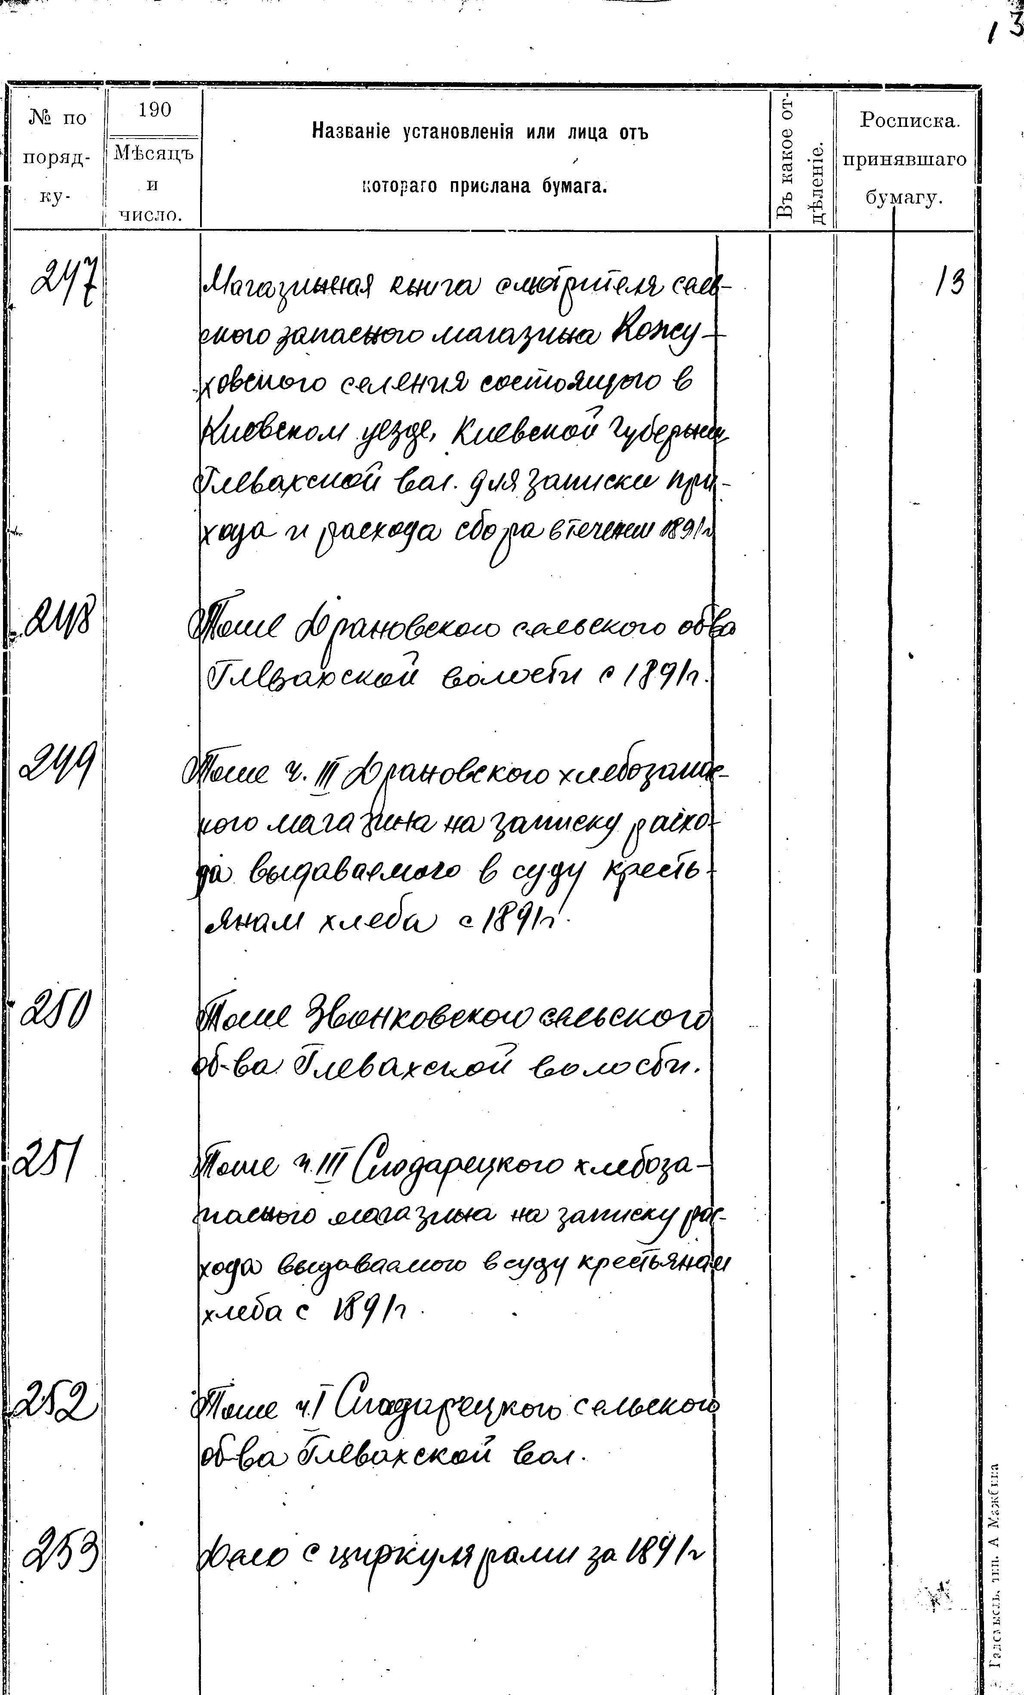 13
№ по поряд- ку-
190
Мѣсяцъ и число.
Названіе установленія или лица отъ
котораго прислана бумага.
Въ какое от- дѣленіе.
Росписка. принявшаго бумагу.
247
Магазинная книга смотрителя сель-
ского запасного магазина Кожу-
ховского селения состоящого в
Киевском уезде, Киевской Губернии
Глевахской вол. для записки при-
хода и расхода сбора в течении 1891г
13
248
Тоже Драновского сельского об-ва
Глевахской волости с 1891г.
249
Тоже ч. III Драновского хлебозапас-
ного магазина на записку расхо-
да выдаваемого в суду кресть-
янам хлеба с 1891г.
250
Тоже Звонковского сельского
об-ва Глевахской волости.
251
Тоже ч. III Слодарецкого хлебоза-
пасного магазина на записку рас-
хода выдаваемого в суду крестьянам
хлеба с 1891г.
252
Тоже ч. I Слодарецкого сельского
об-ва Глевахской вол.
253
Дело с циркулярами за 1891г
тип. А